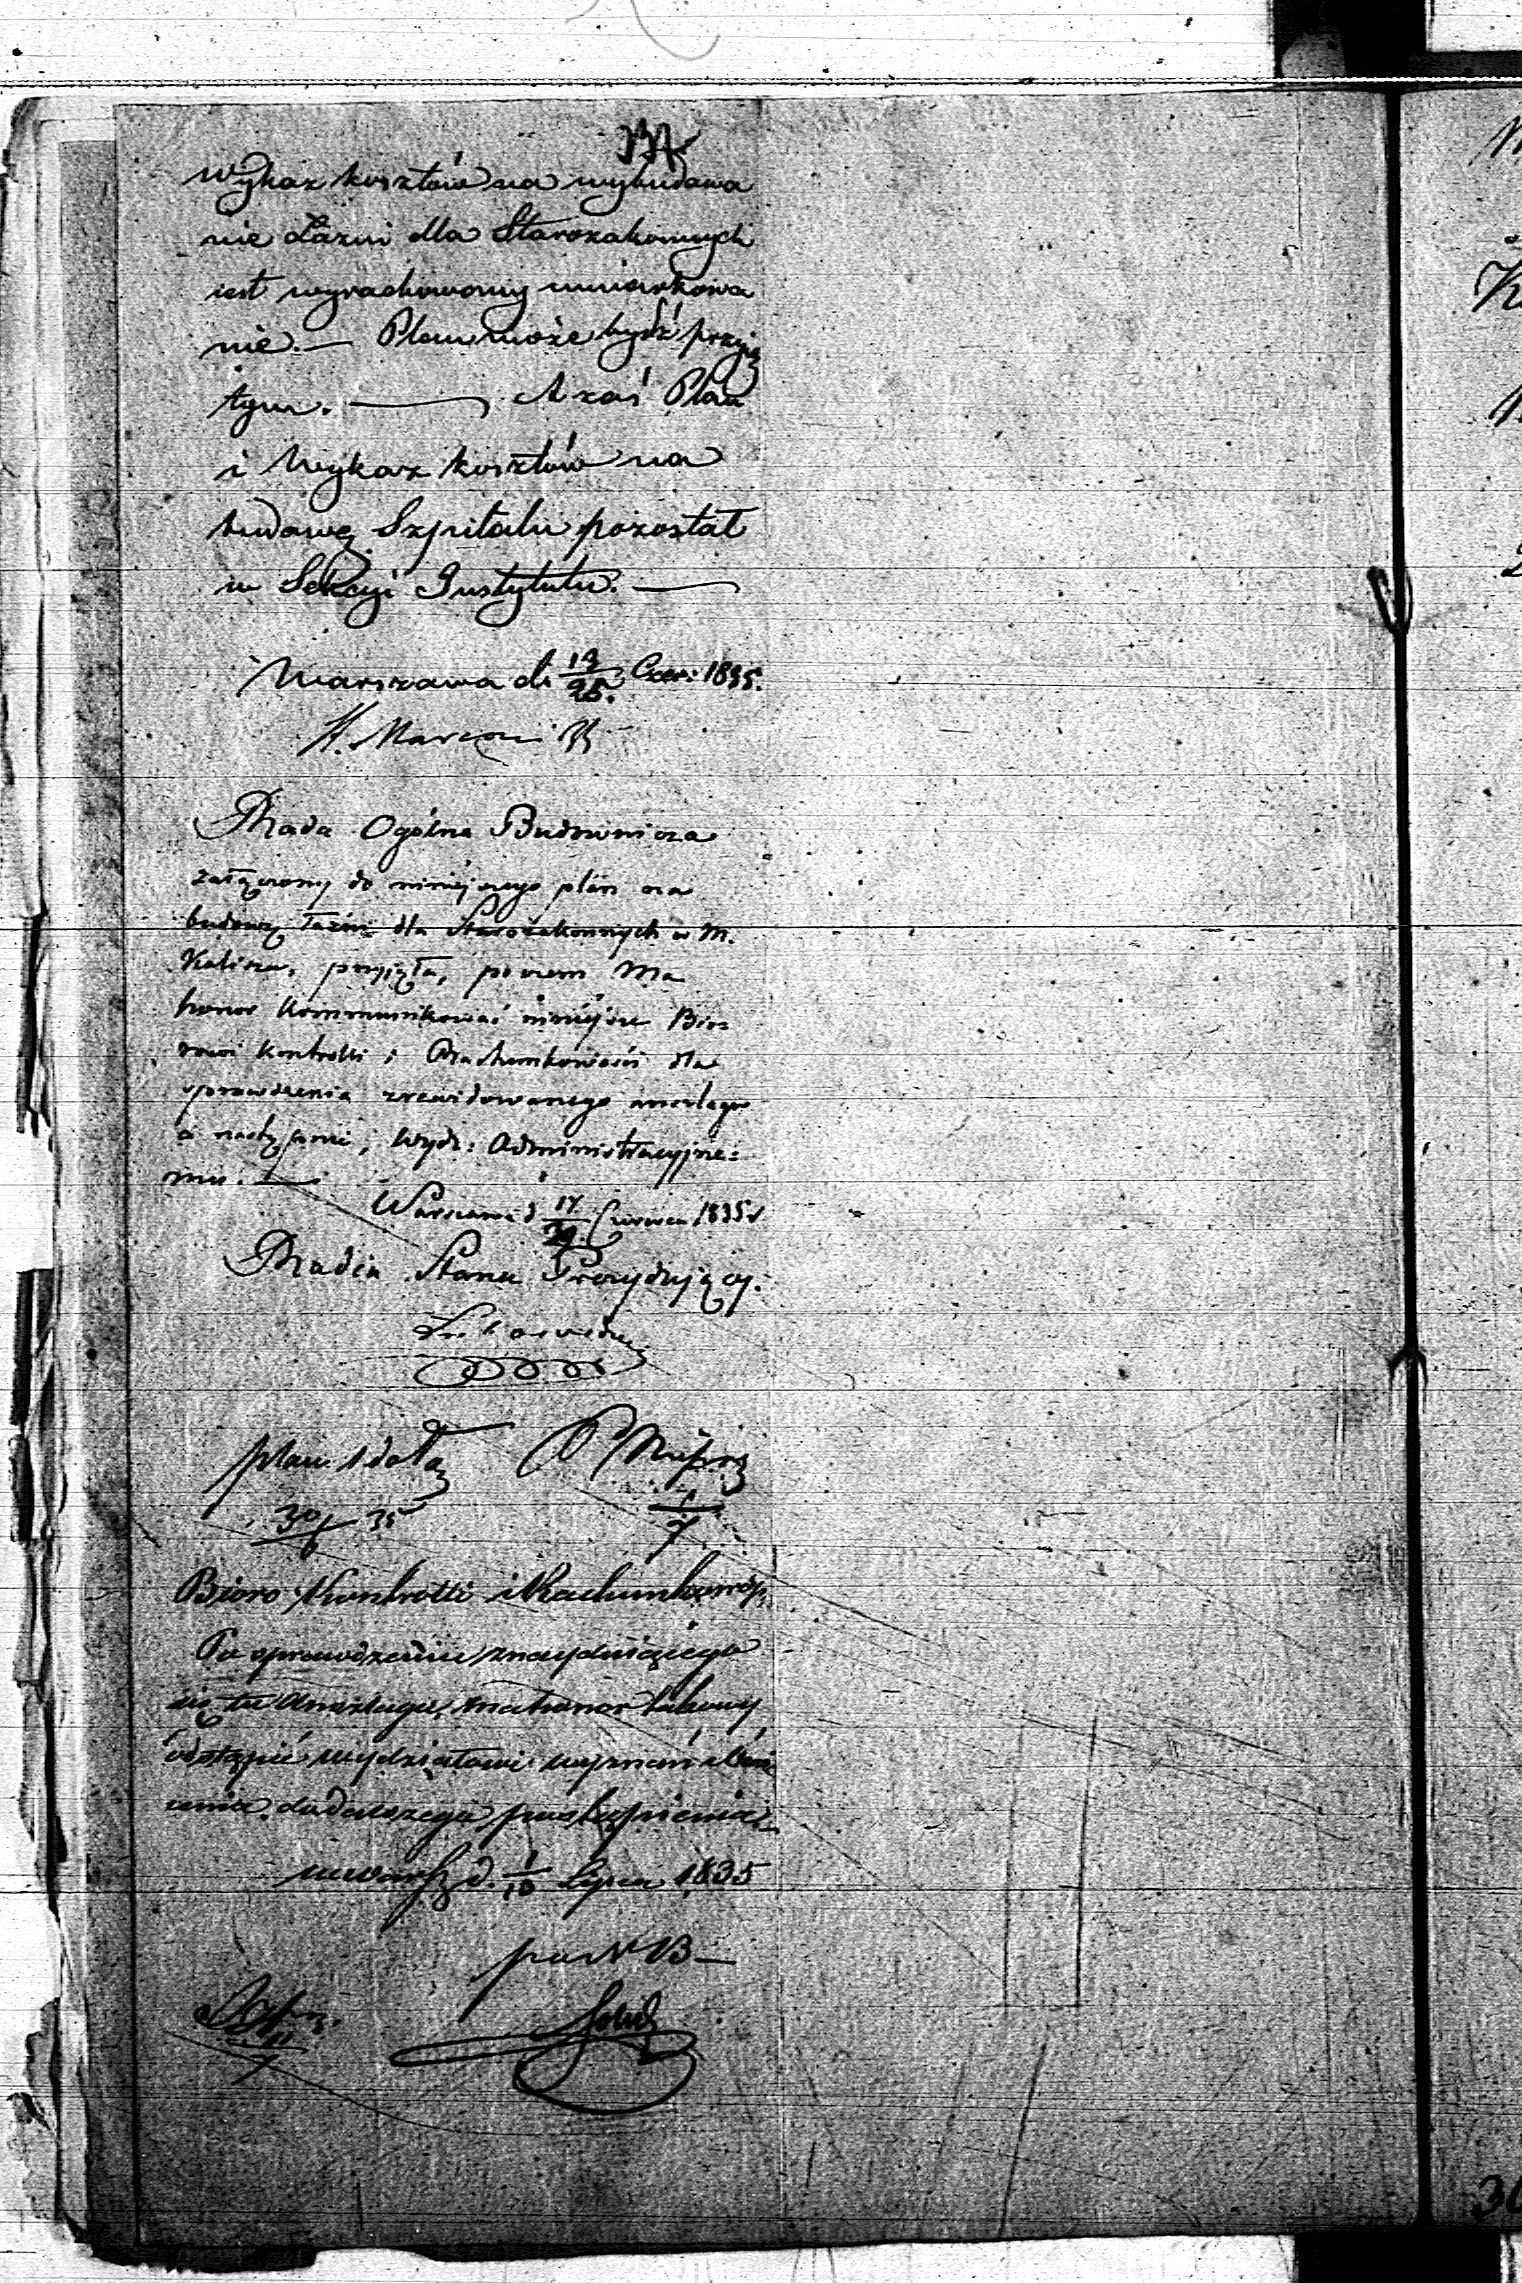 337
Wykaz kosztów na wybudowa
nie Łaźni dla Starozakonnych
iest wyrachowany umiarkowa
nie. — Plan może bydź przyię
tym. — A zaś Plan
i Wykaz kosztów na
budowę Szpitalu pozostał
w Sekcyi Instytutu. —
Warszawa d. 13/25. Czer: 1835.
H. Marconi
Rada Ogólna Budownicza
załączony do niniejszego plan na
budowę łaźni dla Starozakonnych w M.
Kaliszu, przyjęła, poczem ma
honor kommunikować niniejsze Bió
rowi Kontrolli i Rachunkowości dla
sprawdzenia zrewidowanego anszlagu
a następnie, Wydz: Administracyjne=
mu. —
Warszawa d 17/29. Czerwca 1835 r
Radca Stanu Prezydujący.
plan 1 dołą
30/6 35
7
Bióro Kontrolli i Rachunkowości
Po sprawdzeniu znayduiącego
się tu Anszlagu, ma honor takowy
odstąpić wydziałowi wyznań i Oświe
cenia do dalszego postąpienia
w Warsz d. 1/10 Lipca 1835
po N B —